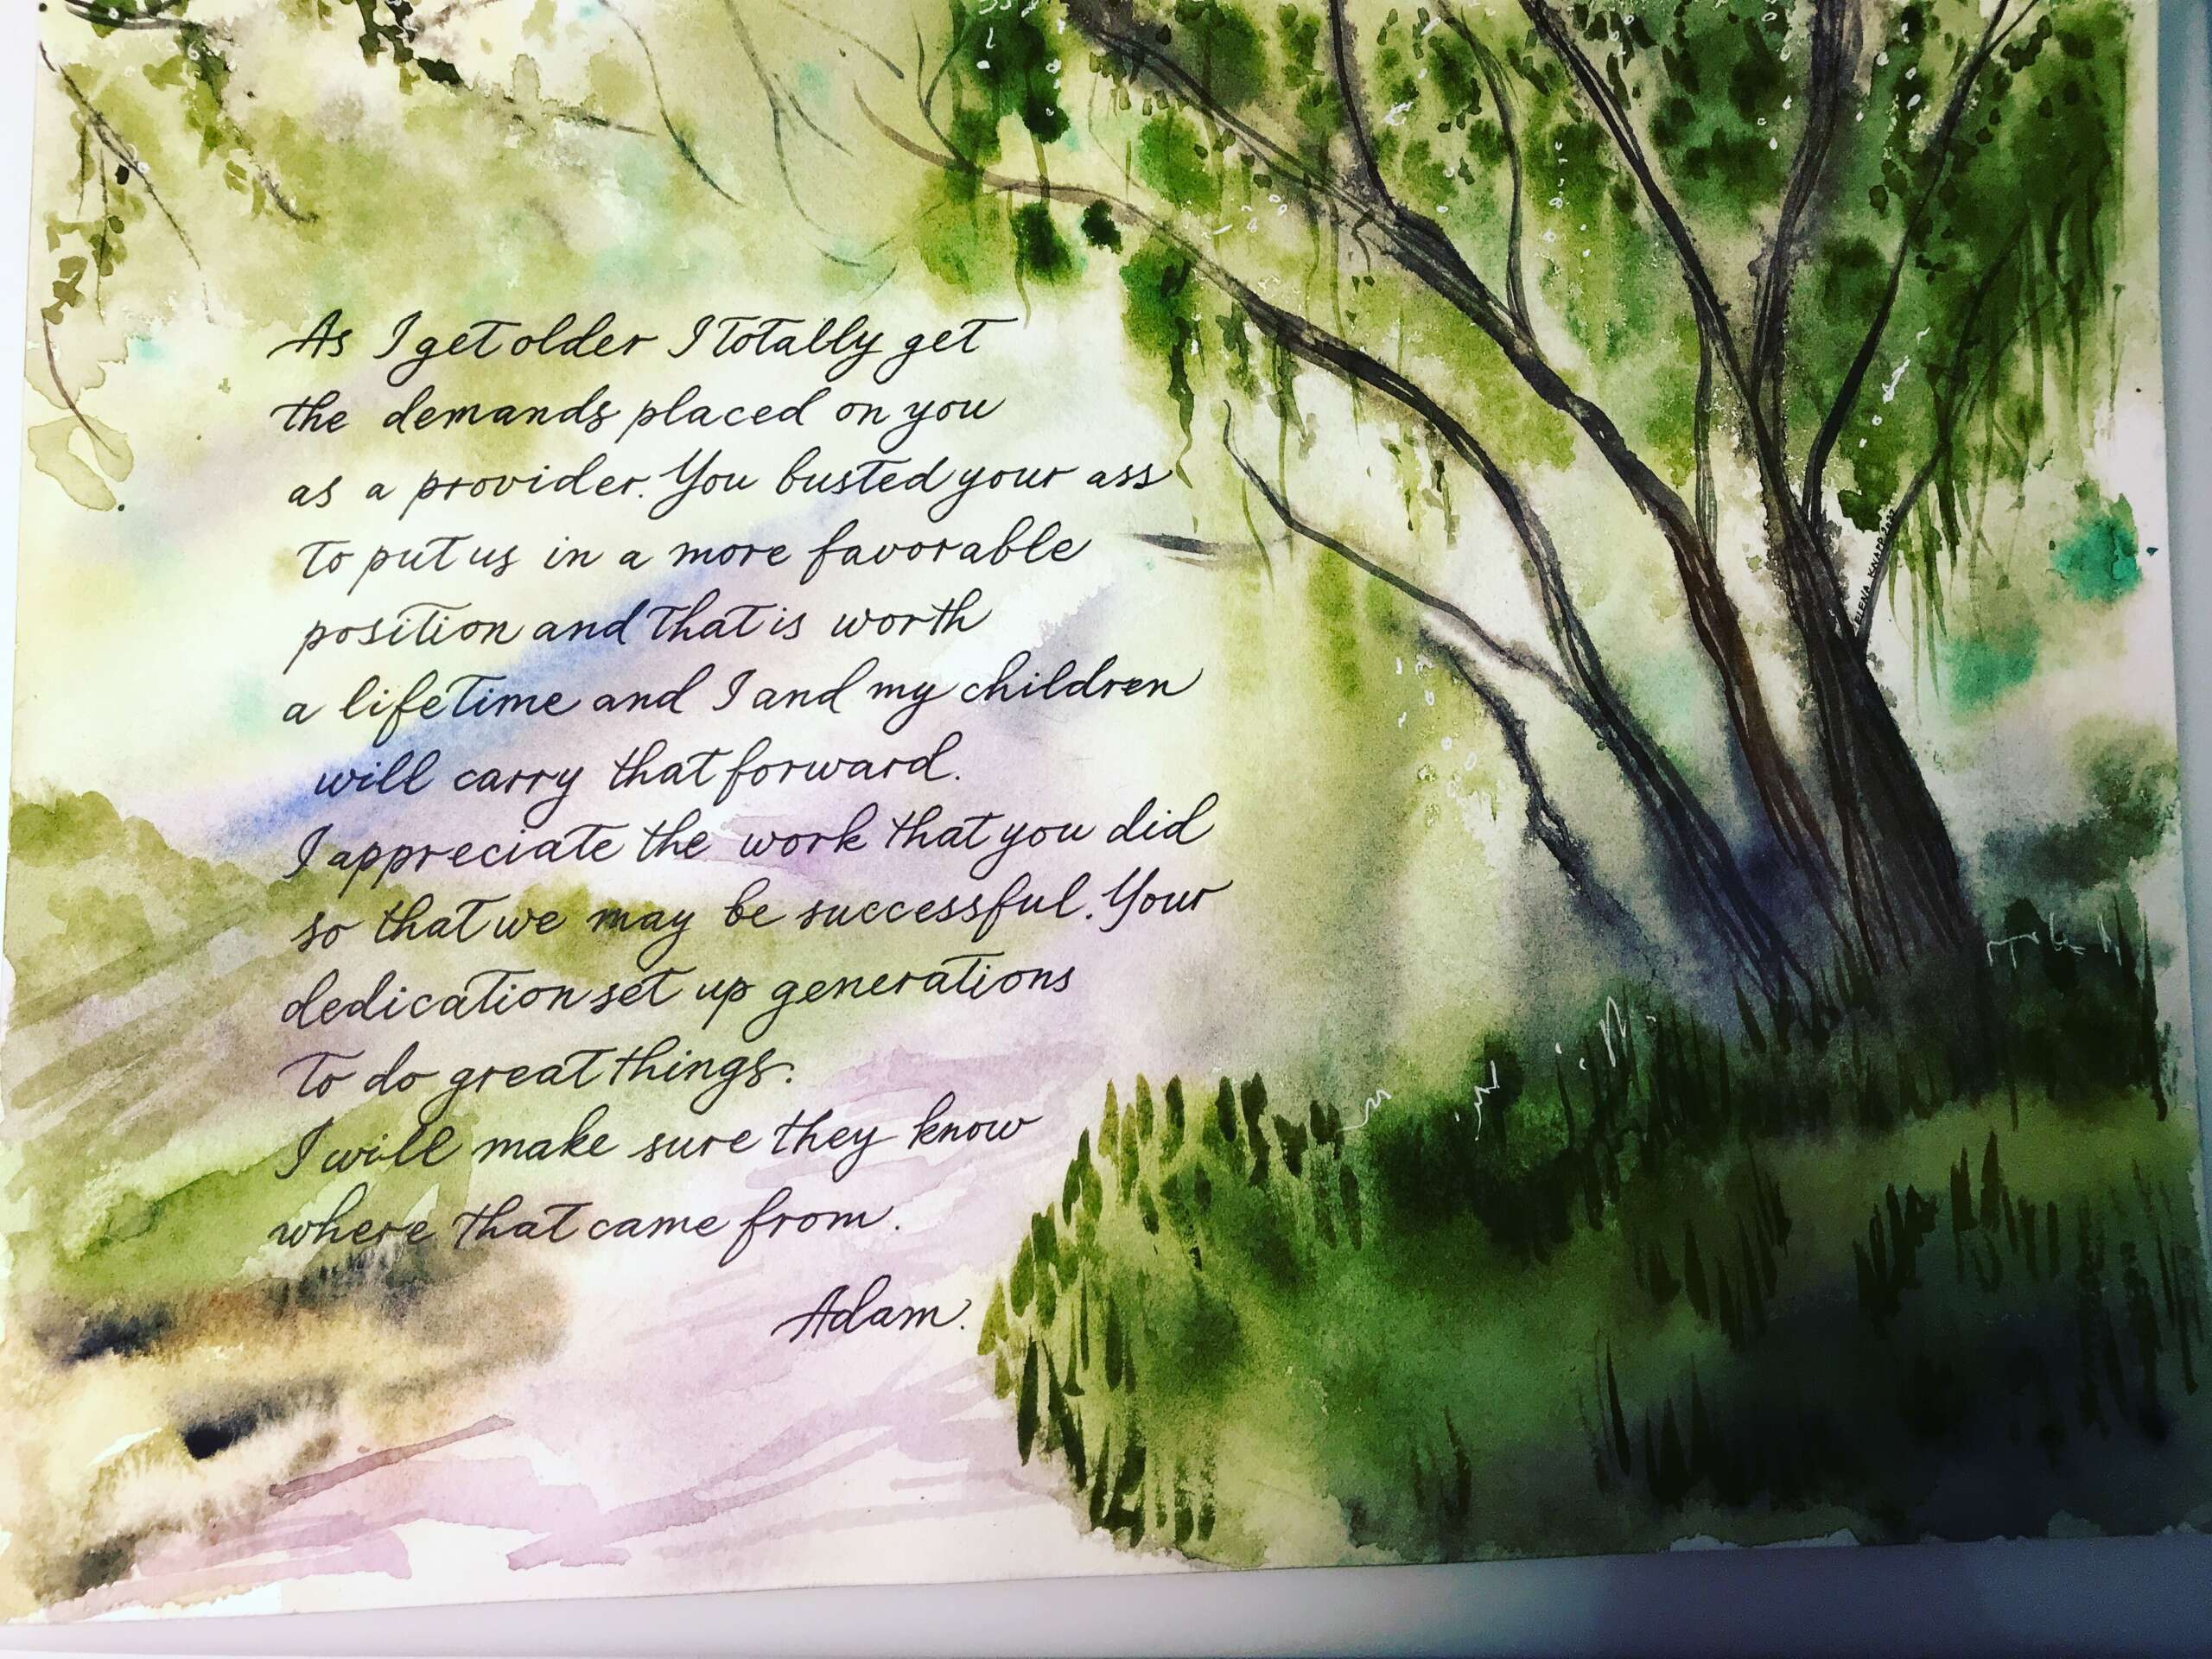 As I get older I totally get
the demands placed on you
as a provider. You busted your ass
to put us in a more favorable
position and that is worth
a lifetime and I and my children
will carry that forward.
I appreciate the work that you did
so that we may be successful. Your
dedication set up generations
to do great things.
I will make sure they know
where that came from.
Adam.
ELENA KNAPP 2022